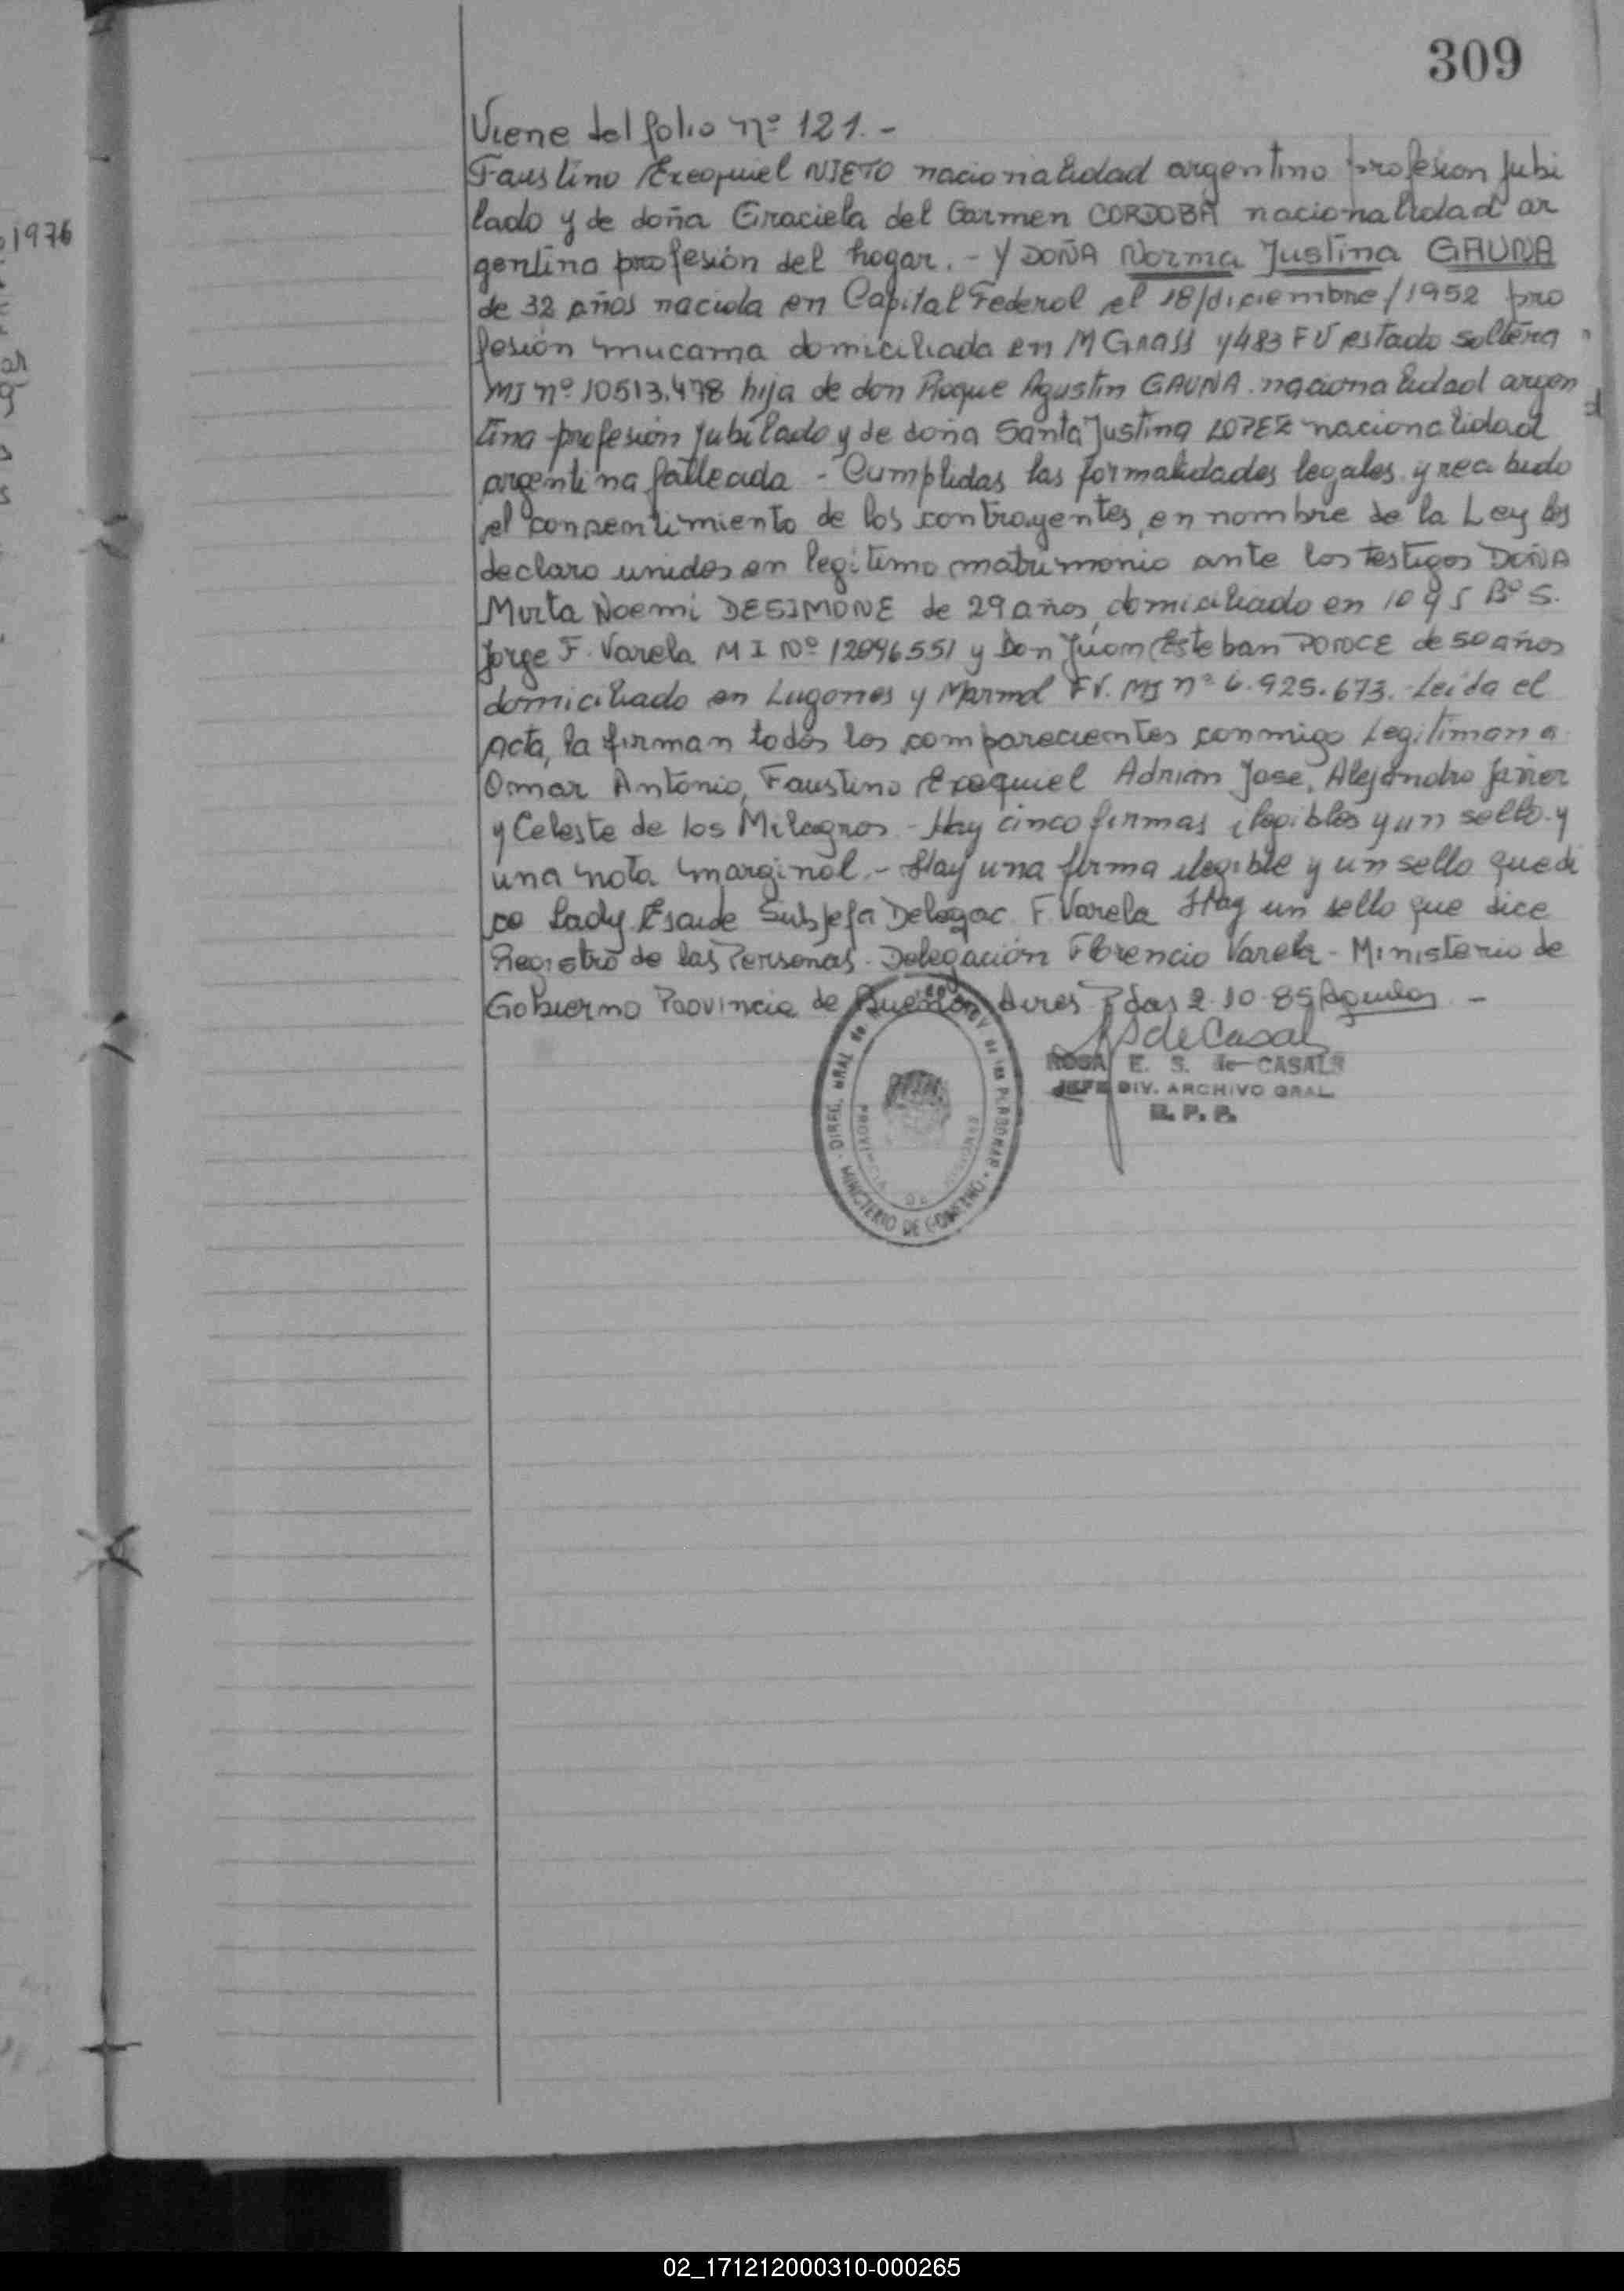 309
1976
Viene del folio nº 121.-
Faustino Exequiel NIETO nacionalidad argentino profesion Jubi
lado y de doña Graciela del Carmen CORDOBA nacionalidad ar
gentina profesión del hogar.- Y DOÑA Norma Justina GAUNA
de 32 años nacida en Capital Federal el 18/diciembre/1952 pro
fesión mucama domiciliada en M GRASS y 483 FV estado soltera
MI nº 10513.478 hija de don Roque Agustin GAUNA nacionalidad argen
tina profesión Jubilado y de doña Santa Justina LOPEZ nacionalidad
argentina fallecida - Cumplidas las formalidades legales y recibido
el consentimiento de los contrayentes, en nombre de la Ley los
declaro unidos en legitimo matrimonio ante los testigos DOÑA
Mirta Noemi DESIMONE de 29 años domiciliado en 10 y 5 Bº S.
Jorge F. Varela M I Nº 12096551 y Don Juan Esteban PONCE de 50 años
domiciliado en Lugones y Marmol FV. MI nº 6.925.673. Leida el
Acta, la firman todos los comparecientes conmigo Legitiman a
Omar Antonio, Faustino Exequiel Adrian Jose, Alejandro Javier
y Celeste de los Milagros - Hay cinco firmas ilegibles y un sello y
una nota marginal.- Hay una firma ilegible y un sello que di
ce Lady Subjefa Delegac. F. Varela Hay un sello que dice
Registro de las Personas. Delegación Florencio Varela - Ministerio de
Gobierno Provincia de Buenos Aires Pdas 2-10-85 -
S de Casals
ROSA E. S. de CASALS
JEFE DIV. ARCHIVO GRAL.
R. P. P.
DIREC. GRAL de las PERSONAS
MINISTERIO DE GOBIERNO
PROVINCIA DE MISIONES
02_171212000310-000265